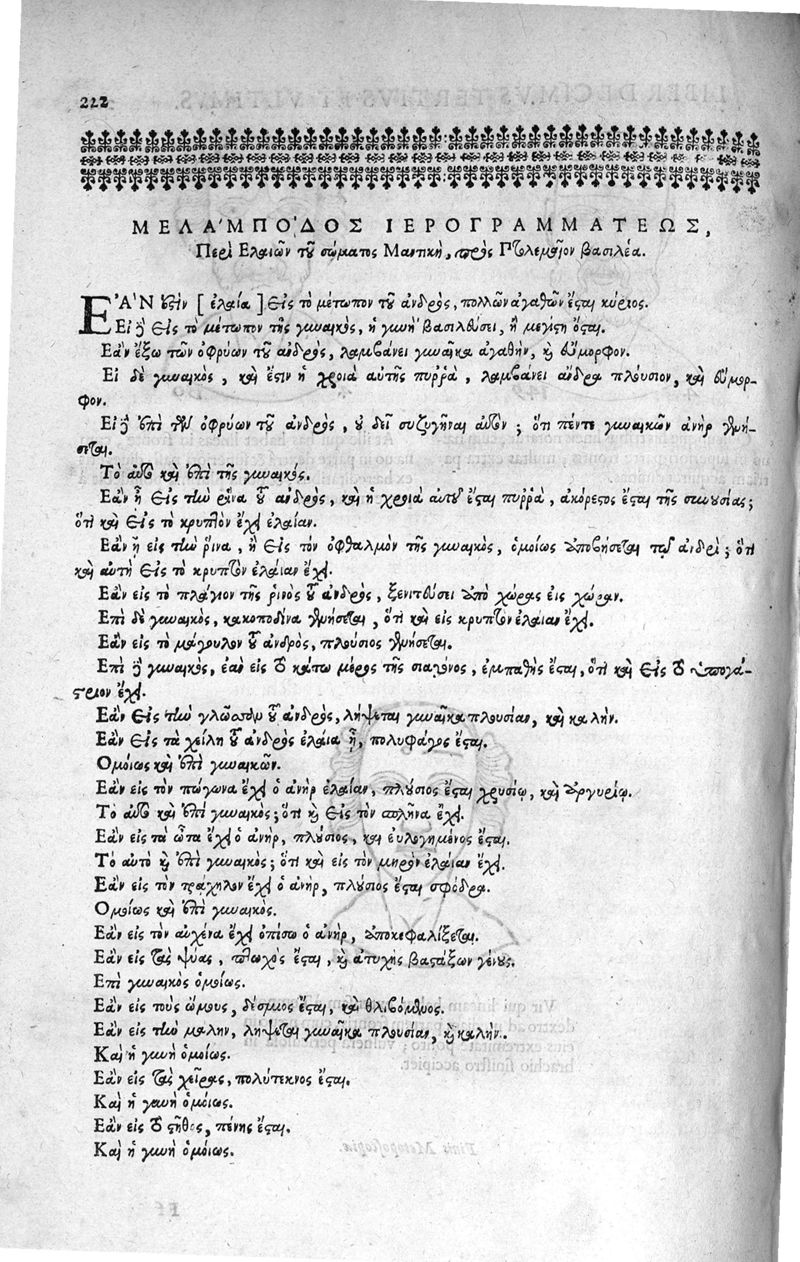 222
ΜΕΛΑ'ΜΠΟ'ΔΟΣ ΙΕΡΟΓΡΑΜΜΑΤΕΩΣ,
Περὶ Ελαιῶν τοῦ σώματος Μαντικὴ, πρὸς Πτολεμαῖον βασιλέα.
Ε'ΑΝ ὅϛιν [ ἐλαία ] εἰς τὸ μέτωπον τοῦ ἀνδρὸς, πολλῶν ἀγαθῶν ἔϛαι κύριος.
Εἰ δὲ εἰς τὸ μέτωπον τῆς γυναικὸς, ἡ γυνὴ βασιλεύσει, ἢ μεγίϛη ἔϛαι.
Εὰν ἔξω τῶν ὀφρύων τοῦ ἀνδρὸς, λαμβάνει γυναῖκα ἀγαθὴν, καὶ εὔμορφον.
Εἰ δὲ γυναικὸς, καὶ ἔϛιν ἡ χροιὰ αὐτῆς πυῤῥὰ, λαμβάνει ἄνδρα πλούσιον, καὶ εὔμορ-
φον.
Εἰ δὲ ἐπὶ τῶν ὀφρύων τοῦ ἀνδρὸς, οὐ δεῖ συζυγῆναι αὐτὸν; ὅτι πέντε γυναικῶν ἀνὴρ γενή-
σεται.
Τὸ αὐτὸ καὶ ἐπὶ τῆς γυναικός.
Εὰν ᾖ εἰς τὴν ῥῖνα τοῦ ἀνδρὸς, καὶ ἡ χροιὰ αὐτοῦ ἔϛαι πυῤῥὰ, ἀκόρεϛος ἔϛαι τῆς συνουσίας;
ὅτι καὶ εἰς τὸ κρυπτὸν ἔχει ἐλαίαν.
Εὰν ᾖ εἰς τὴν ῥινα, ἢ εἰς τὸν ὀφθαλμὸν τῆς γυναικὸς, ὁμοίως ἀποβήσεται τῷ ἀνδρὶ; ὅτι
καὶ αὐτὴ εἰς τὸ κρυπτὸν ἐλαίαν ἔχει.
Εὰν εἰς τὸ πλάγιον τῆς ῥινὸς τοῦ ἀνδρὸς, ξενιτεύσει ἀπὸ χώρας εἰς χώραν.
Επὶ δὲ γυναικὸς, κακοποδίνα γενήσεται, ὅτι καὶ εἰς κρυπτὸν ἐλαίαν ἔχει.
Εὰν εἰς τὸ μάγουλον τοῦ ἀνδρὸς, πλούσιος γενήσεται.
Επὶ δὲ γυναικὸς, ἐὰν εἰς τὸ κάτω μέρος τῆς σιαγόνος, ἐμπαθὴς ἔϛαι, ὅτι καὶ εἰς τὸ ὑπογά-
ϛριον ἔχει.
Εὰν εἰς τὴν γλῶσσαν τοῦ ἀνδρὸς, λήψεται γυναῖκα πλουσίαν, καὶ καλήν.
Εὰν εἰς τὰ χείλη τοῦ ἀνδρὸς ἐλαία ᾖ, πολυφάγος ἔϛαι.
Ομοίως καὶ ἐπὶ γυναικῶν.
Εὰν εἰς τὸν πώγωνα ἔχει ὁ ἀνὴρ ἐλαίαν, πλούσιος ἔϛαι χρυσίῳ, καὶ ἀργυρίῳ.
Τὸ αὐτὸ καὶ ἐπὶ γυναικὸς; ὅτι καὶ εἰς τὸν σπλῆνα ἔχει.
Εὰν εἰς τὰ ὦτα ἔχει ὁ ἀνὴρ, πλούσιος, καὶ εὐλογημένος ἔϛαι.
Τὸ αὐτὸ καὶ ἐπὶ γυναικὸς; ὅτι καὶ εἰς τὸν μηρὸν ἐλαίαν ἔχει.
Εὰν εἰς τὸν τράχηλον ἔχει ὁ ἀνὴρ, πλούσιος ἔϛαι σφόδρα.
Ομοίως καὶ ἐπὶ γυναικός.
Εὰν εἰς τὸν αὐχένα ἔχει ὀπίσω ὁ ἀνὴρ, ἀποκεφαλίζεται.
Εὰν εἰς τὰς ψύας, πτωχὸς ἔϛαι, καὶ ἀτυχὴς βαϛάζων γένους.
Επὶ γυναικὸς ὁμοίως.
Εὰν εἰς τοὺς ὤμους, δέσμιος ἔϛαι, καὶ θλιβόμενος.
Εὰν εἰς τὴν μαλην, λήψεται γυναῖκα πλουσίαν, καὶ καλήν.
Καὶ ἡ γυνὴ ὁμοίως.
Εὰν εἰς τὰς χεῖρας, πολύτεκνος ἔϛαι.
Καὶ ἡ γυνὴ ὁμοίως.
Εὰν εἰς τὸ ϛῆθος, πένης ἔϛαι.
Καὶ ἡ γυνὴ ὁμοίως.